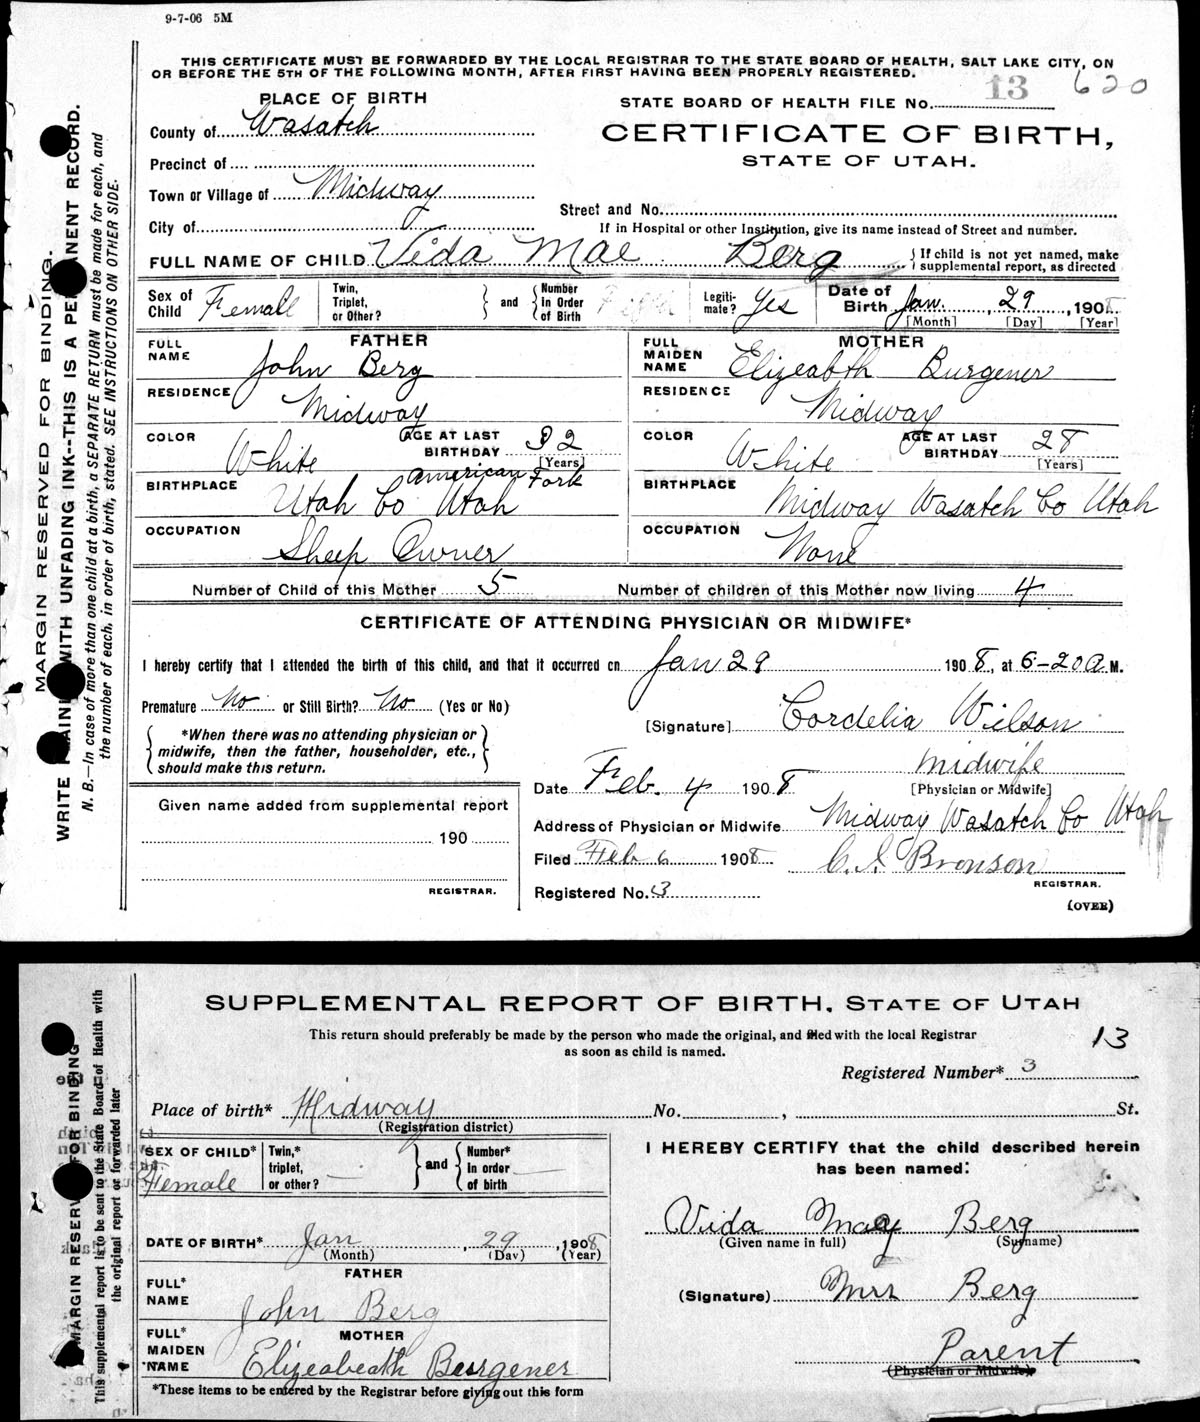 9-7-06 5M
THIS CERTIFICATE MUST BE FORWARDED BY THE LOCAL REGISTRAR TO THE STATE BOARD OF HEALTH, SALT LAKE CITY, ON
OR BEFORE THE 5TH OF THE FOLLOWING MONTH, AFTER FIRST HAVING BEEN PROPERLY REGISTERED.
PLACE OF BIRTH
STATE BOARD OF HEALTH FILE No. 13 620
County of Wasatch
CERTIFICATE OF BIRTH,
STATE OF UTAH.
Precinct of
Town or Village of Midway
Street and No.
City of
If in Hospital or other Institution, give its name instead of Street and number.
FULL NAME OF CHILD Vida Mae Berg
{ If child is not yet named, make
supplemental report, as directed
Sex of Child Female
Twin, Triplet, or Other?
} and {
Number in Order of Birth Fifth
Legiti-mate? Yes
Date of Birth Jan. 29, 1908
[Month] [Day] [Year]
FATHER
FULL NAME John Berg
RESIDENCE Midway
COLOR White
AGE AT LAST BIRTHDAY 32
[Years]
BIRTHPLACE American Fork
Utah Co Utah
OCCUPATION Sheep Owner
MOTHER
FULL MAIDEN NAME Elizeabth Burgener
RESIDENCE Midway
COLOR White
AGE AT LAST BIRTHDAY 28
[Years]
BIRTHPLACE Midway Wasatch Co Utah
OCCUPATION None
Number of Child of this Mother 5 Number of children of this Mother now living 4
CERTIFICATE OF ATTENDING PHYSICIAN OR MIDWIFE*
I hereby certify that I attended the birth of this child, and that it occurred on Jan 29 1908, at 6-20 A M.
Premature No or Still Birth? No (Yes or No)
[Signature] Cordelia Wilson
*When there was no attending physician or
midwife, then the father, householder, etc.,
should make this return.
Midwife
[Physician or Midwife]
Date Feb. 4 1908
Given name added from supplemental report
190
REGISTRAR.
Address of Physician or Midwife Midway Wasatch Co Utah
Filed Feb 6 1908 C. I. Bronson
REGISTRAR.
Registered No. 3
(OVER)
MARGIN RESERVED FOR BINDING.
WRITE PLAINLY WITH UNFADING INK--THIS IS A PERMANENT RECORD.
N. B.—In case of more than one child at a birth, a SEPARATE RETURN must be made for each, and
the number of each, in order of birth, stated. SEE INSTRUCTIONS ON OTHER SIDE.
SUPPLEMENTAL REPORT OF BIRTH, STATE OF UTAH
This return should preferably be made by the person who made the original, and filed with the local Registrar
as soon as child is named.
13
Registered Number* 3
Place of birth* Midway No. , St.
(Registration district)
SEX OF CHILD* Female
Twin,* triplet, or other?
} and {
Number* in order of birth
DATE OF BIRTH* Jan, 29, 1908
(Month) (Day) (Year)
FATHER
FULL* NAME John Berg
MOTHER
FULL* MAIDEN NAME Elizeabeath Burgener
*These items to be entered by the Registrar before giving out this form
I HEREBY CERTIFY that the child described herein
has been named:
Vida May Berg
(Given name in full) (Surname)
(Signature) Mrs Berg
Parent
(Physician or Midwife)
MARGIN RESERVED FOR BINDING
This supplemental report is to be sent to the State Board of Health with
the original report or forwarded later